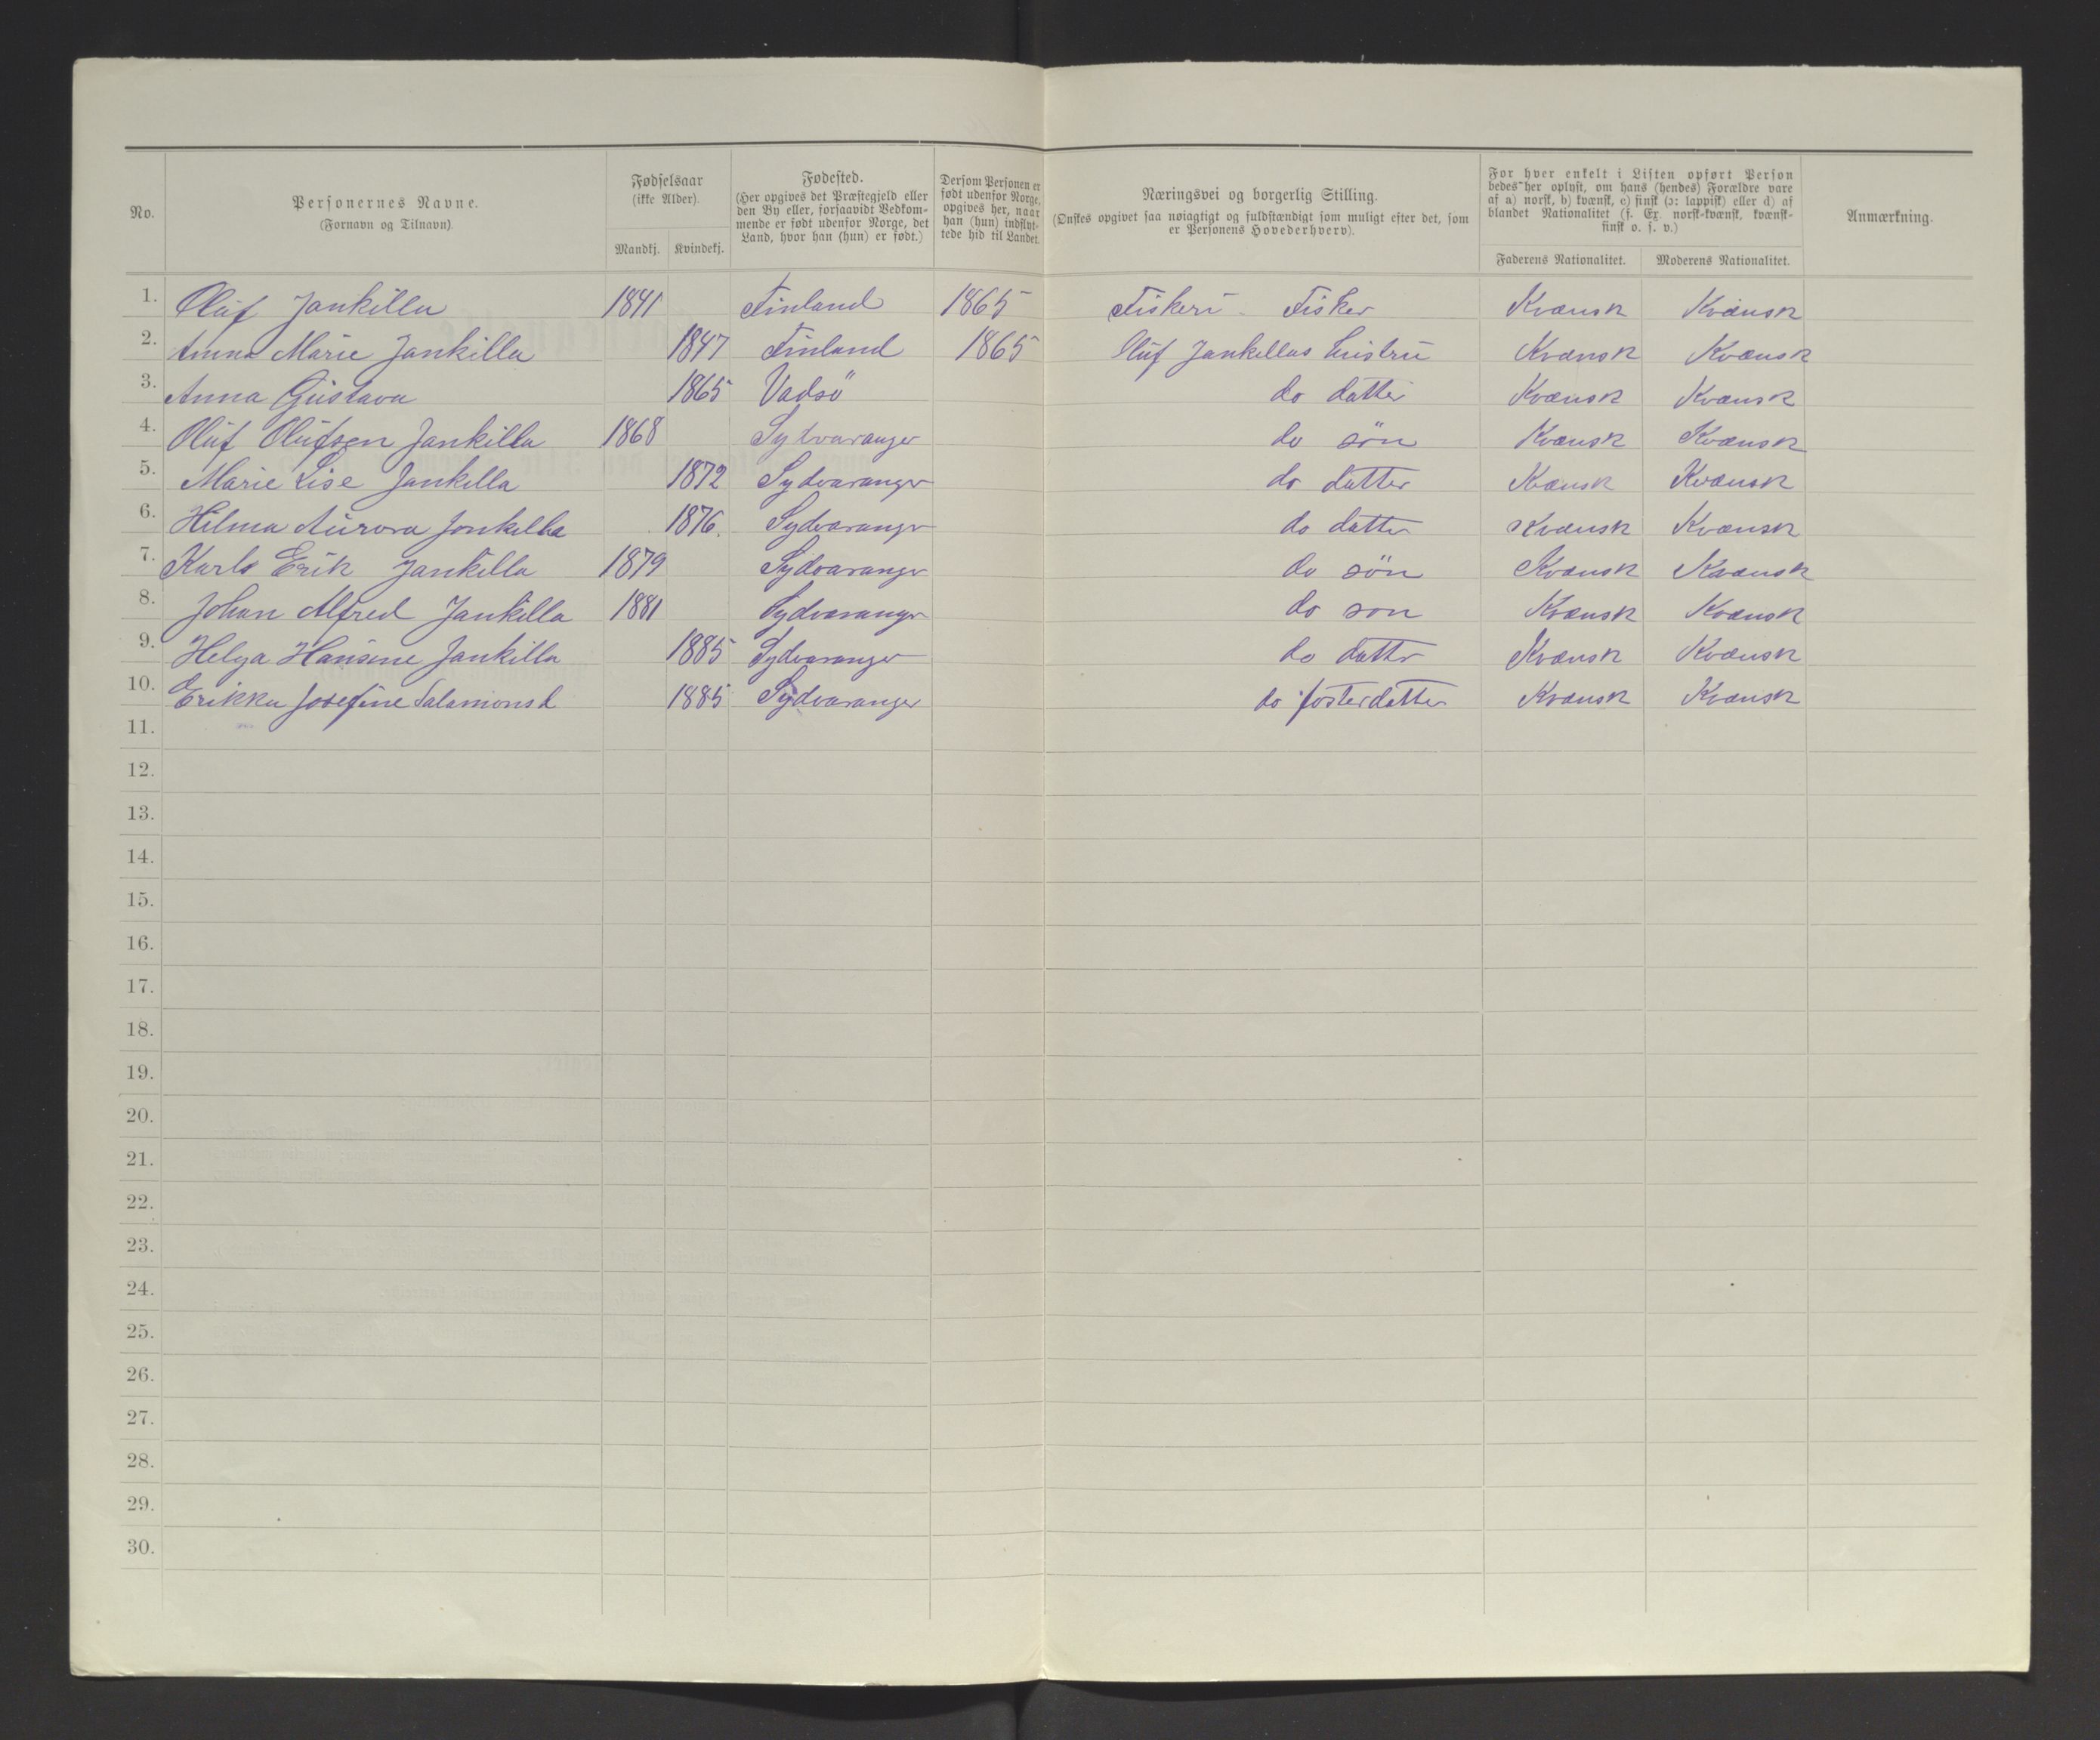 No.
Personernes Navne.
(Fornavn og Tilnavn).
Fødselsaar
(ikke Alder).
Mandkj. Kvindekj.
Fødested.
(Her opgives det Præstegjeld eller
den By eller, forsaavidt Vedkom-
mende er født udenfor Norge, det
Land, hvor han (hun) er født.)
Dersom Personen er
født udenfor Norge,
opgives her, naar
han (hun) indflyt-
tede hid til Landet.
Næringsvei og borgerlig Stilling.
(Ønskes opgivet saa nøiagtigt og fuldstændigt som muligt efter det, som
er Personens Hovederhverv).
For hver enkelt i Listen opført Person
bedes her oplyst, om hans (hendes) Forældre vare
af a) norsk, b) kvænsk, c) finsk (ɔ: lappisk) eller d) af
blandet Nationalitet (f. Ex. norsk-kvænsk, kvænsk-
finsk o. s. v.)
Faderens Nationalitet. Moderens Nationalitet.
Anmærkning.
1. Oluf Jankilla 1841 Finland 1865 Fiskeri Fisker Kvænsk Kvænsk
2. Anna Marie Jankilla 1847 Finland 1865 Oluf Jankillas hustru Kvænsk Kvænsk
3. Anna Gustava 1865 Vadsö do datter Kvænsk Kvænsk
4. Oluf Olufsen Jankilla 1868 Sydvaranger do sön Kvænsk Kvænsk
5. Marie Lise Jankilla 1872 Sydvaranger do datter Kvænsk Kvænsk
6. Hilma Aurora Jonkilla 1876. Sydvaranger do datter Kvænsk Kvænsk
7. Karlo Erik Jankilla 1879 Sydvaranger do sön Kvænsk Kvænsk
8. Johan Alfred Jankilla 1881 Sydvaranger do son Kvænsk Kvænsk
9. Helga Hansine Jankilla 1885 Sydvaranger do datter Kvænsk Kvænsk
10. Erikka Josefine Salamonsd 1885 Sydvaranger do fosterdatter Kvænsk Kvænsk
11.
12.
13.
14.
15.
16.
17.
18.
19.
20.
21.
22.
23.
24.
25.
26.
27.
28.
29.
30.